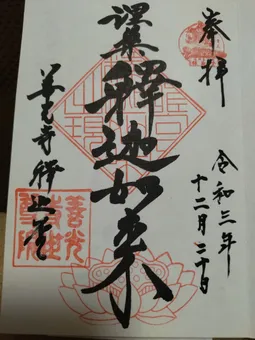 奉拝
令和三年
十二月二十日
釋迦如来
善光寺釋迦堂